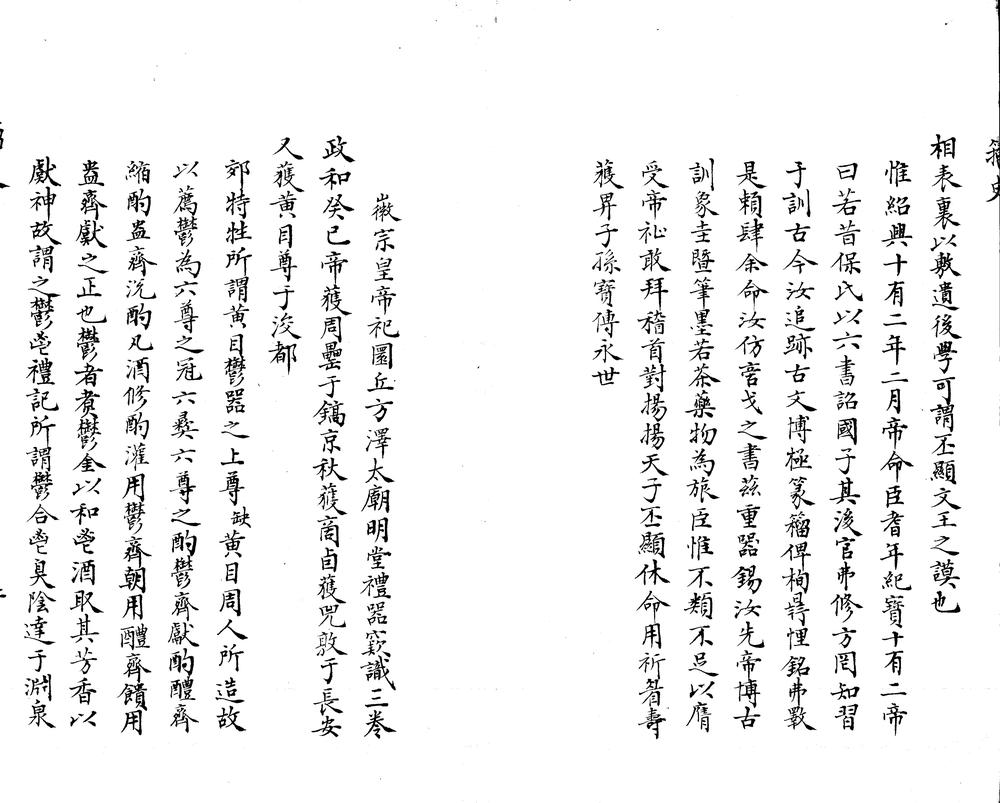 籀史
相表裏以敷遺後學可謂丕顯文王之謨也
惟紹興十有二年二月帝命臣耆年紀寶十有二帝
曰若昔保氏以六書詔國子其後官弗修方罔知習
于訓古今汝追跡古文博極篆籀俾栒㝵悝銘弗斁
是賴肆余命汝仿窖戈之書茲重器錫汝先帝博古
訓象圭暨筆墨若茶藥物為旅臣惟不類不足以膺
受帝祉敢拜稽首對揚揚天子丕顯休命用祈眉壽
獲昇子孫寶傳永世
徽宗皇帝祀圜丘方澤太廟明堂禮器款識三卷
政和癸巳帝獲周罍于鎬京秋獲商卣獲兕敦于長安
又獲黃目尊于浚都
郊特牲所謂黃目鬱器之上尊缺黃目周人所造故
以薦鬱為六尊之冠六彝六尊之酌鬱齊獻酌醴齊
縮酌盎齊涗酌凡酒修酌灌用鬱齊朝用醴齊饋用
盎齊獻之正也鬱者煑鬱金以和鬯酒取其芳香以
獻神故謂之鬱鬯禮記所謂鬱合鬯臭陰達于淵泉